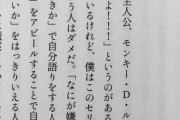 主人公、モンキー・D・ル
よ!!!」というのがある
いるけれど、僕はこのセリ
う人はダメだ。「なにが嫌
きか」で自分語りをする人
をアピールすることで自
いか」をはっきりいえる人